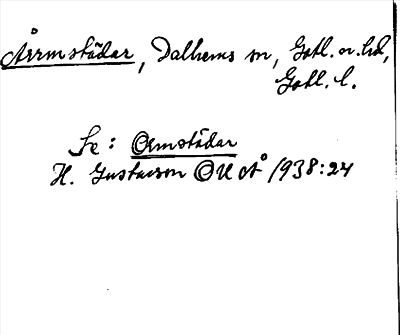 Årmstädar, Dalhems sn, Gotl. n. hd,
Gotl. l.
Se: Ormstädar
H. Gustavson OUÅ 1938:24